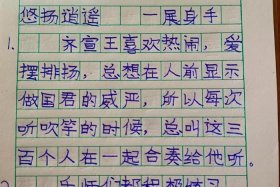 悠扬逍遥 一展身手
1. 齐宣王喜欢热闹，爱
摆排扬，总想在人前显示
做国君的威严，所以每次
听吹竽的时候，总叫这三
百个人在一起合奏给他听。